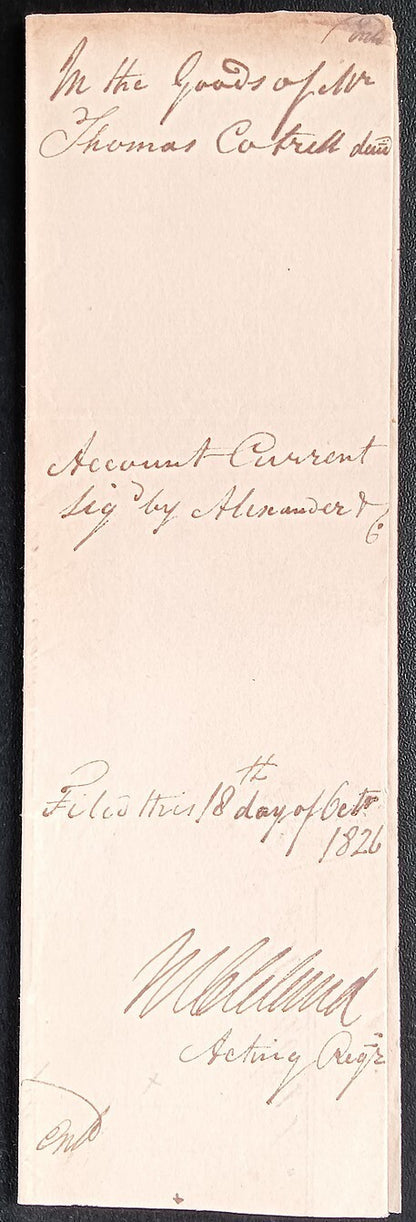 In the Goods of Mr
Thomas Cotrell decd
Account Current
Sigd by Alexander & Co
Filed this 18th day of Octr
1826
Acting Regr